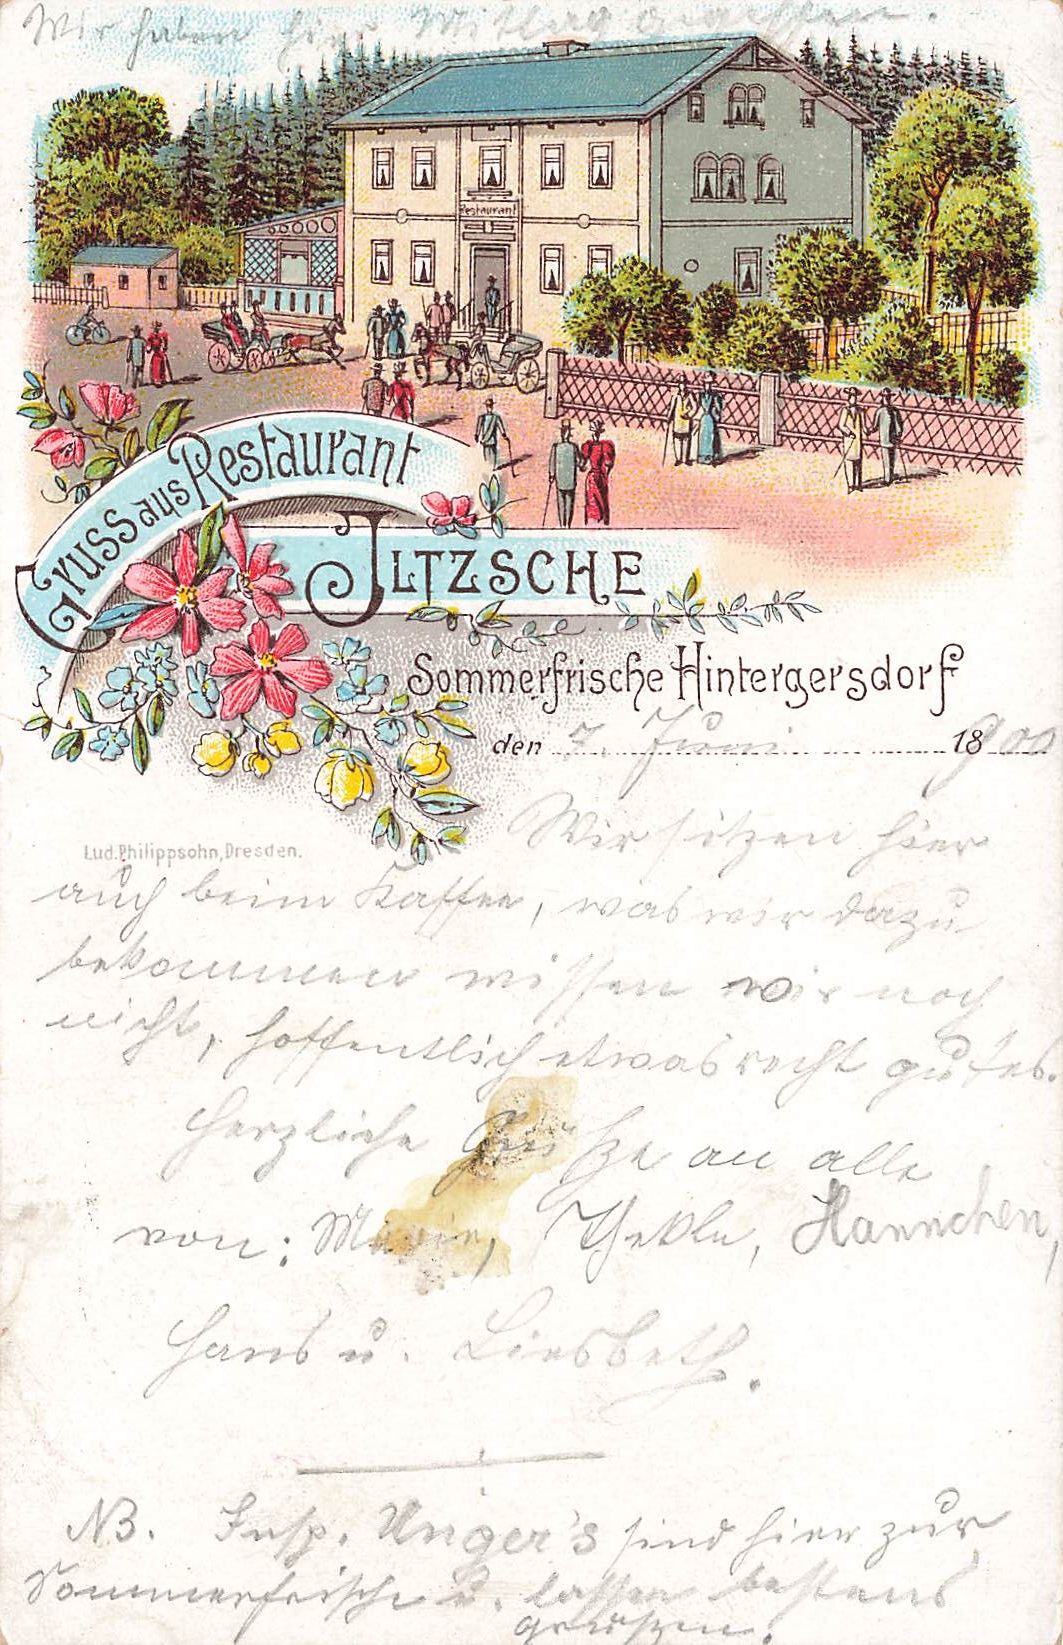 Wir haben hier Mittag gegessen.
Restaurant
Gruss aus Restaurant
JLTZSCHE
Sommerfrische Hintergersdorf
den 7. Juni 18900
Lud. Philippsohn, Dresden.
Wir sitzen hier
auch beim Kaffee, was wir dazu
bekommen wissen wir noch
nicht, hoffentlich etwas recht gutes.
Herzliche Grüße an alle
von: Marie, Thekla, Hannchen,
Hans u. Liesbeth.
NB. Insp. Unger's sind hier zur
Sommerfrische u. lassen bestens
grüßen.